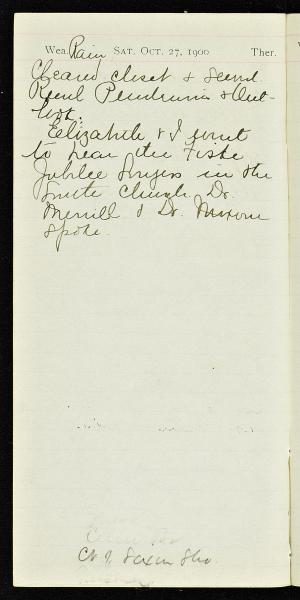 Wea. Rain SAT. OCT. 27, 1900 Ther.
Cleared closet & sewed.
Read Pendennis & Out-
look.
Elizabeth & I went
to hear the Fiske
Jubilee Singers in the
Church. Dr.
Merrill & Dr.
spoke.